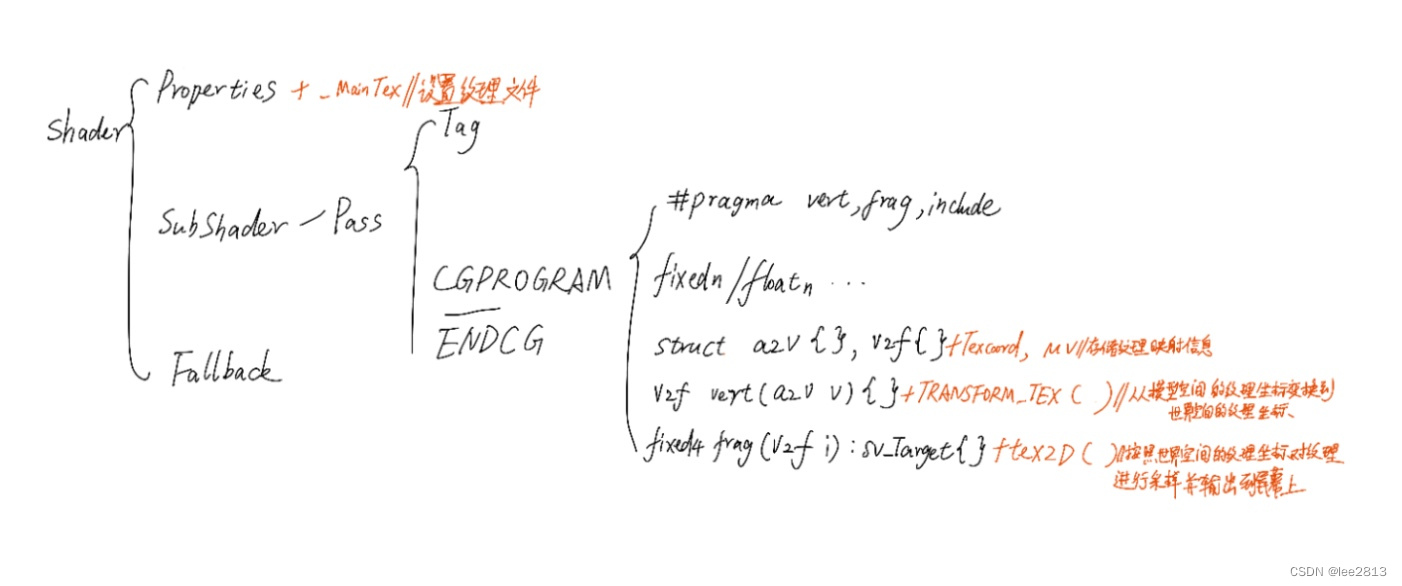 Properties + _MainTex//设置纹理文件
Shader
Tag
SubShader — Pass
#pragma vert,frag,include
CGPROGRAM
fixedn/floatn ...
ENDCG
struct a2v{},v2f{}+Texcoord, uv//存储纹理映射信息
Fallback
v2f vert(a2v v){}+TRANSFORM_TEX( )//从模型空间的纹理坐标变换到
世界空间的纹理坐标、
fixed4 frag(v2f i):SV_Target{}+tex2D( )//按照世界空间的纹理坐标对纹理
进行采样并输出到屏幕上
CSDN @lee2813